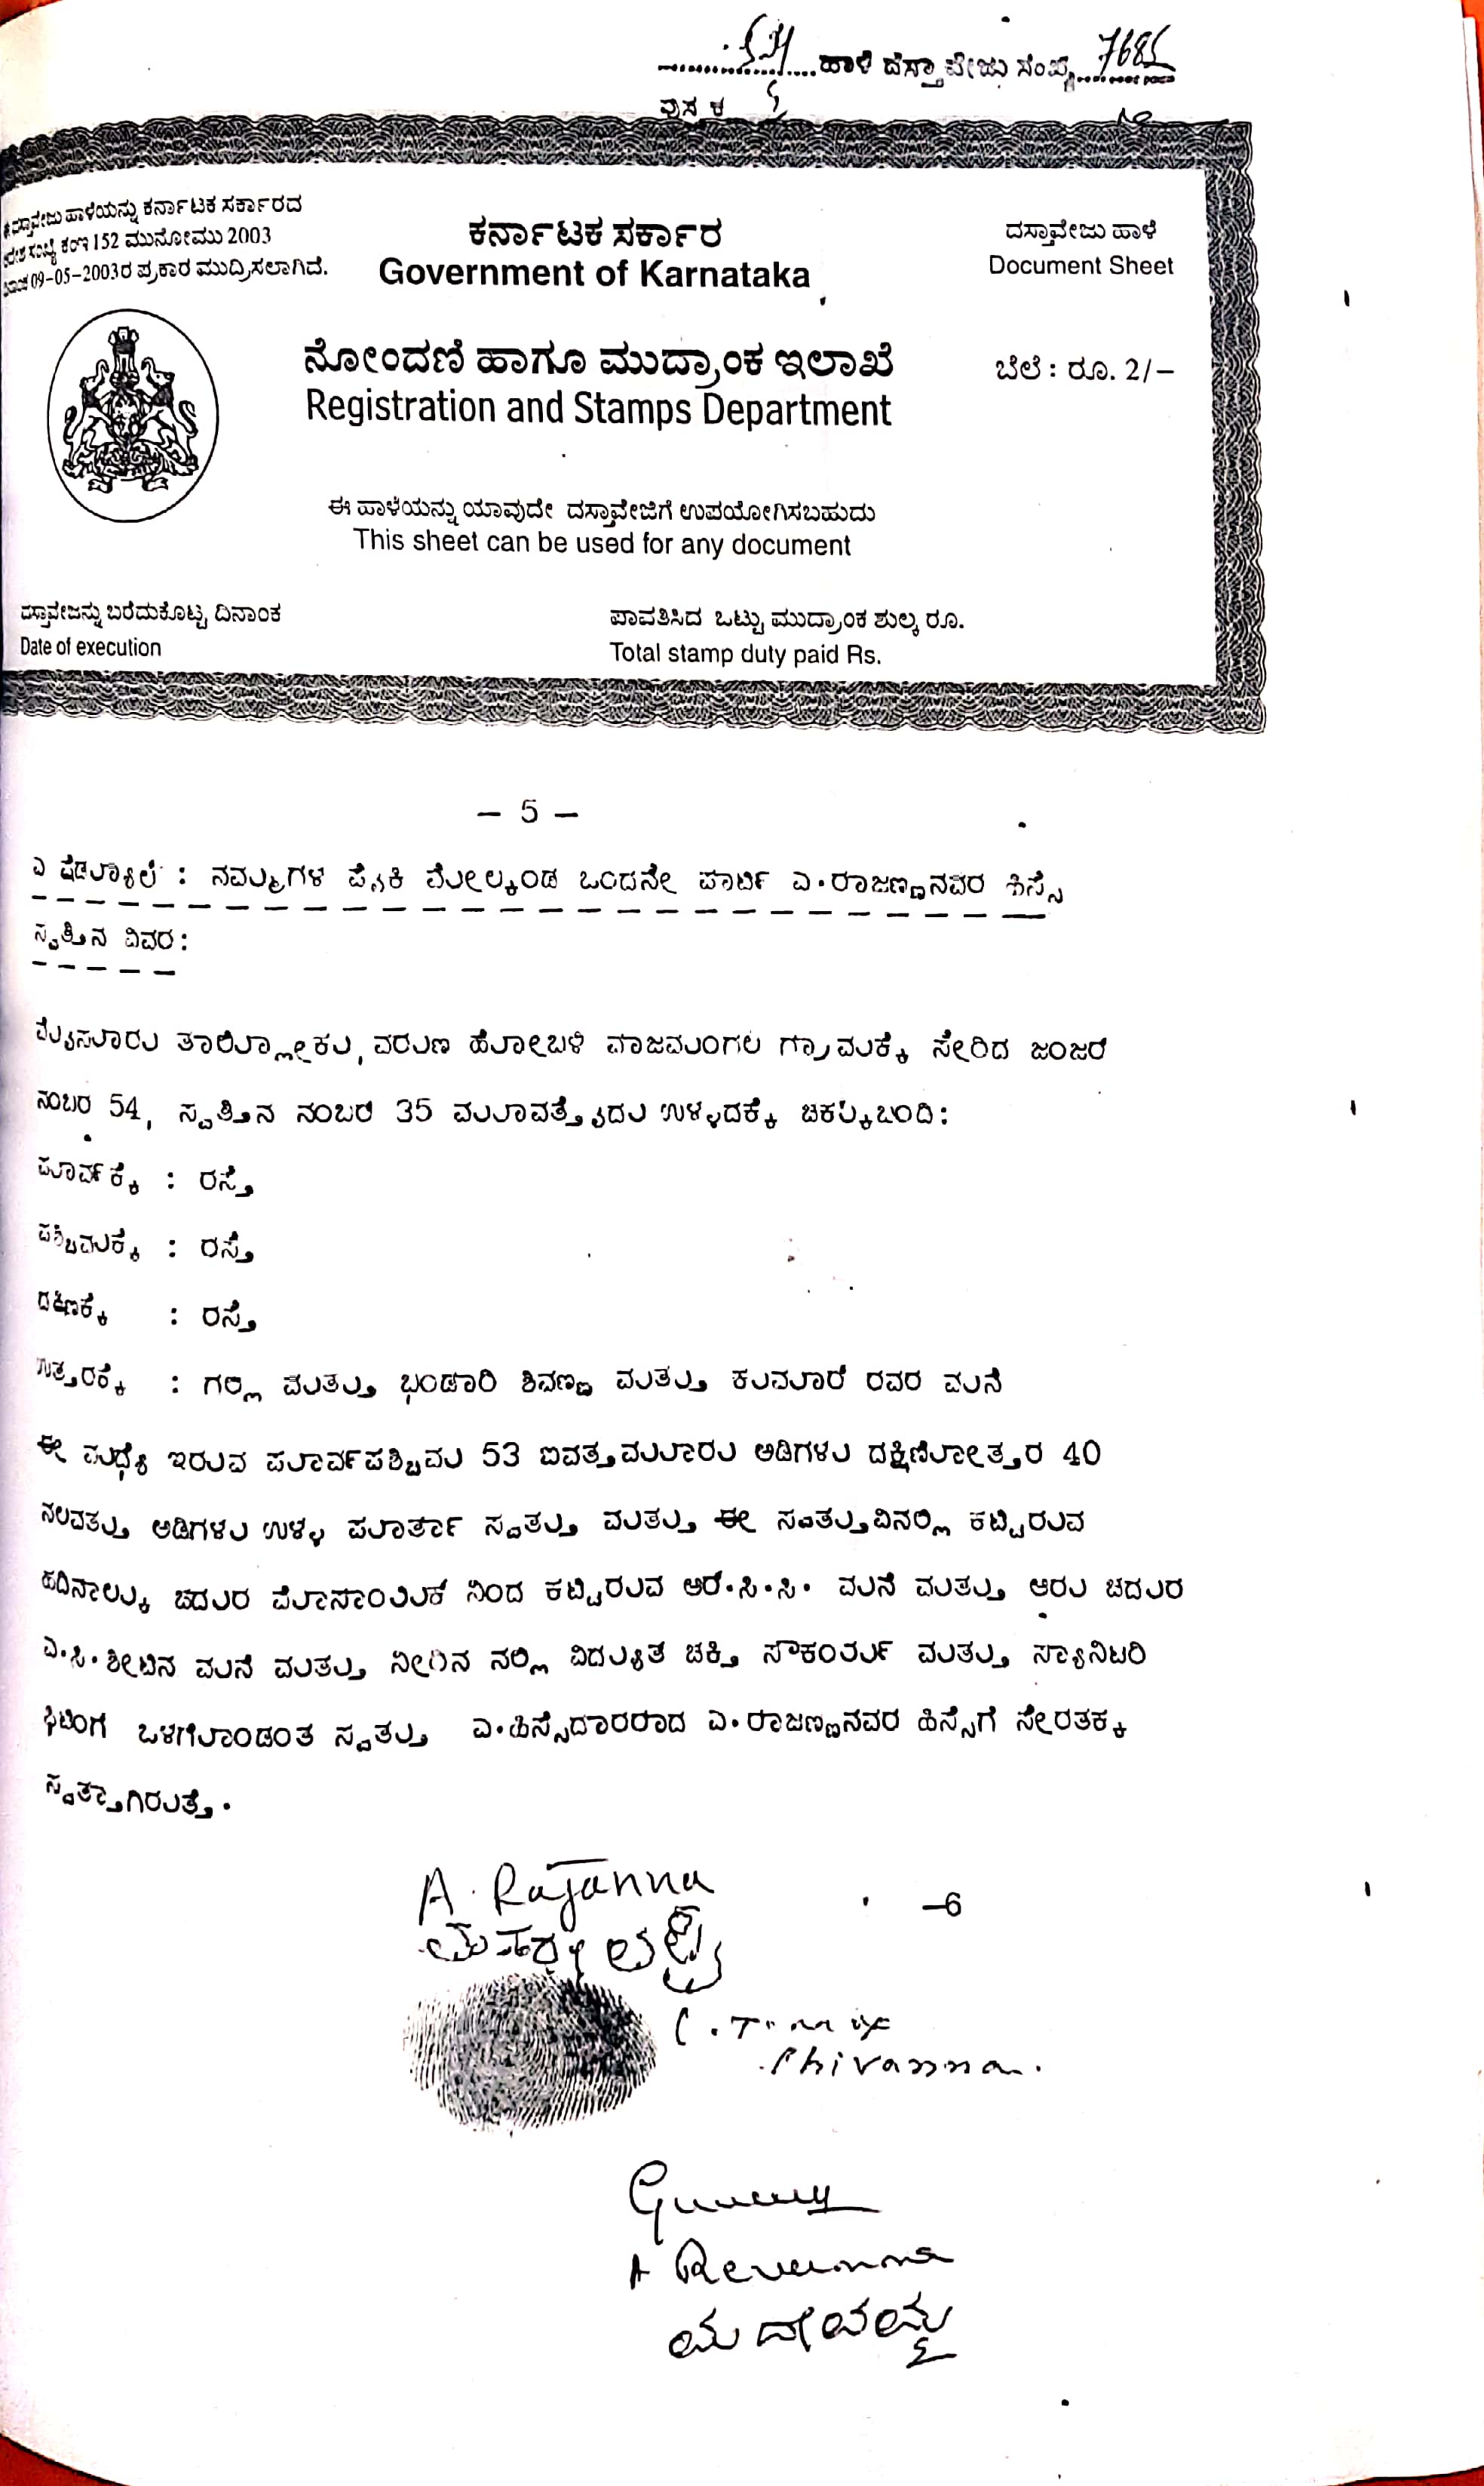 ಹಾಳೆ ದಸ್ತಾವೇಜು ಸಂಖ್ಯೆ 7685
ಪುಸ್ತಕ
ಈ ದಸ್ತಾವೇಜು ಹಾಳೆಯನ್ನು ಕರ್ನಾಟಕ ಸರ್ಕಾರದ
ಆದೇಶ ಸಂಖ್ಯೆ ಕಂಇ 152 ಮುನೋಮು 2003
ದಿನಾಂಕ 09-05-2003ರ ಪ್ರಕಾರ ಮುದ್ರಿಸಲಾಗಿದೆ.
ಕರ್ನಾಟಕ ಸರ್ಕಾರ
Government of Karnataka
ದಸ್ತಾವೇಜು ಹಾಳೆ
Document Sheet
ನೋಂದಣಿ ಹಾಗೂ ಮುದ್ರಾಂಕ ಇಲಾಖೆ
Registration and Stamps Department
ಬೆಲೆ : ರೂ. 2/-
ಈ ಹಾಳೆಯನ್ನು ಯಾವುದೇ ದಸ್ತಾವೇಜಿಗೆ ಉಪಯೋಗಿಸಬಹುದು
This sheet can be used for any document
ದಸ್ತಾವೇಜನ್ನು ಬರೆದುಕೊಟ್ಟ ದಿನಾಂಕ
Date of execution
ಪಾವತಿಸಿದ ಒಟ್ಟು ಮುದ್ರಾಂಕ ಶುಲ್ಕ ರೂ.
Total stamp duty paid Rs.
- 5 -
ಎ ಷೆಡ್ಯೂಲ್ : ನಮ್ಮಗಳ ಪೈಕಿ ಮೇಲ್ಕಂಡ ಒಂದನೇ ಪಾರ್ಟಿ ಎ.ರಾಜಣ್ಣನವರ ಹಿಸ್ಸೆ
ಸ್ವತ್ತಿನ ವಿವರ:
ಮೈಸೂರು ತಾಲ್ಲೂಕು, ವರುಣ ಹೋಬಳಿ ವಾಜಮಂಗಲ ಗ್ರಾಮಕ್ಕೆ ಸೇರಿದ ಜಂಜರ್
ನಂಬರ 54, ಸ್ವತ್ತಿನ ನಂಬರ್ 35 ಮೂವತ್ತೈದು ಉಳ್ಳದಕ್ಕೆ ಚಕ್ಕುಬಂದಿ:
ಪೂರ್ವಕ್ಕೆ : ರಸ್ತೆ
ಪಶ್ಚಿಮಕ್ಕೆ : ರಸ್ತೆ
ದಕ್ಷಿಣಕ್ಕೆ : ರಸ್ತೆ
ಉತ್ತರಕ್ಕೆ : ಗಲ್ಲಿ ಮತ್ತು ಭಂಡಾರಿ ಶಿವಣ್ಣ ಮತ್ತು ಕುಮಾರ್ ರವರ ಮನೆ
ಈ ಮಧ್ಯೆ ಇರುವ ಪೂರ್ವಪಶ್ಚಿಮ 53 ಐವತ್ತಮೂರು ಅಡಿಗಳು ದಕ್ಷಿಣೋತ್ತರ 40
ನಲವತ್ತು ಅಡಿಗಳು ಉಳ್ಳ ಪೂರ್ತಾ ಸ್ವತ್ತು ಮತ್ತು ಈ ಸ್ವತ್ತುವಿನಲ್ಲಿ ಕಟ್ಟಿರುವ
ಹದಿನಾಲ್ಕು ಚದುರ ಮೊಸಾಯಿಕ್ ನಿಂದ ಕಟ್ಟಿರುವ ಆರ್.ಸಿ.ಸಿ. ಮನೆ ಮತ್ತು ಆರು ಚದುರ
ಎ.ಸಿ.ಶೀಟಿನ ಮನೆ ಮತ್ತು ನೀರಿನ ನಲ್ಲಿ ವಿದ್ಯುತ ಚಕ್ತಿ ಸೌಕರ್ಯ ಮತ್ತು ಸ್ಯಾನಿಟರಿ
ಫಿಟಿಂಗ ಒಳಗೊಂಡಂತ ಸ್ವತ್ತು ಎ.ಹಿಸ್ಸೆದಾರರಾದ ಎ.ರಾಜಣ್ಣನವರ ಹಿಸ್ಸೆಗೆ ಸೇರತಕ್ಕ
ಸ್ವತ್ತಾಗಿರುತ್ತೆ.
A. Rajanna
-6
Shivanna.
A Revanna
ಮಾದೇವಮ್ಮ